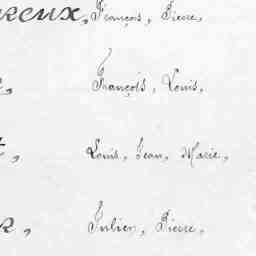 reux, François, Pierre,
, François, Louis,
t, Louis, Jean, Marie,
, Julien, Pierre,